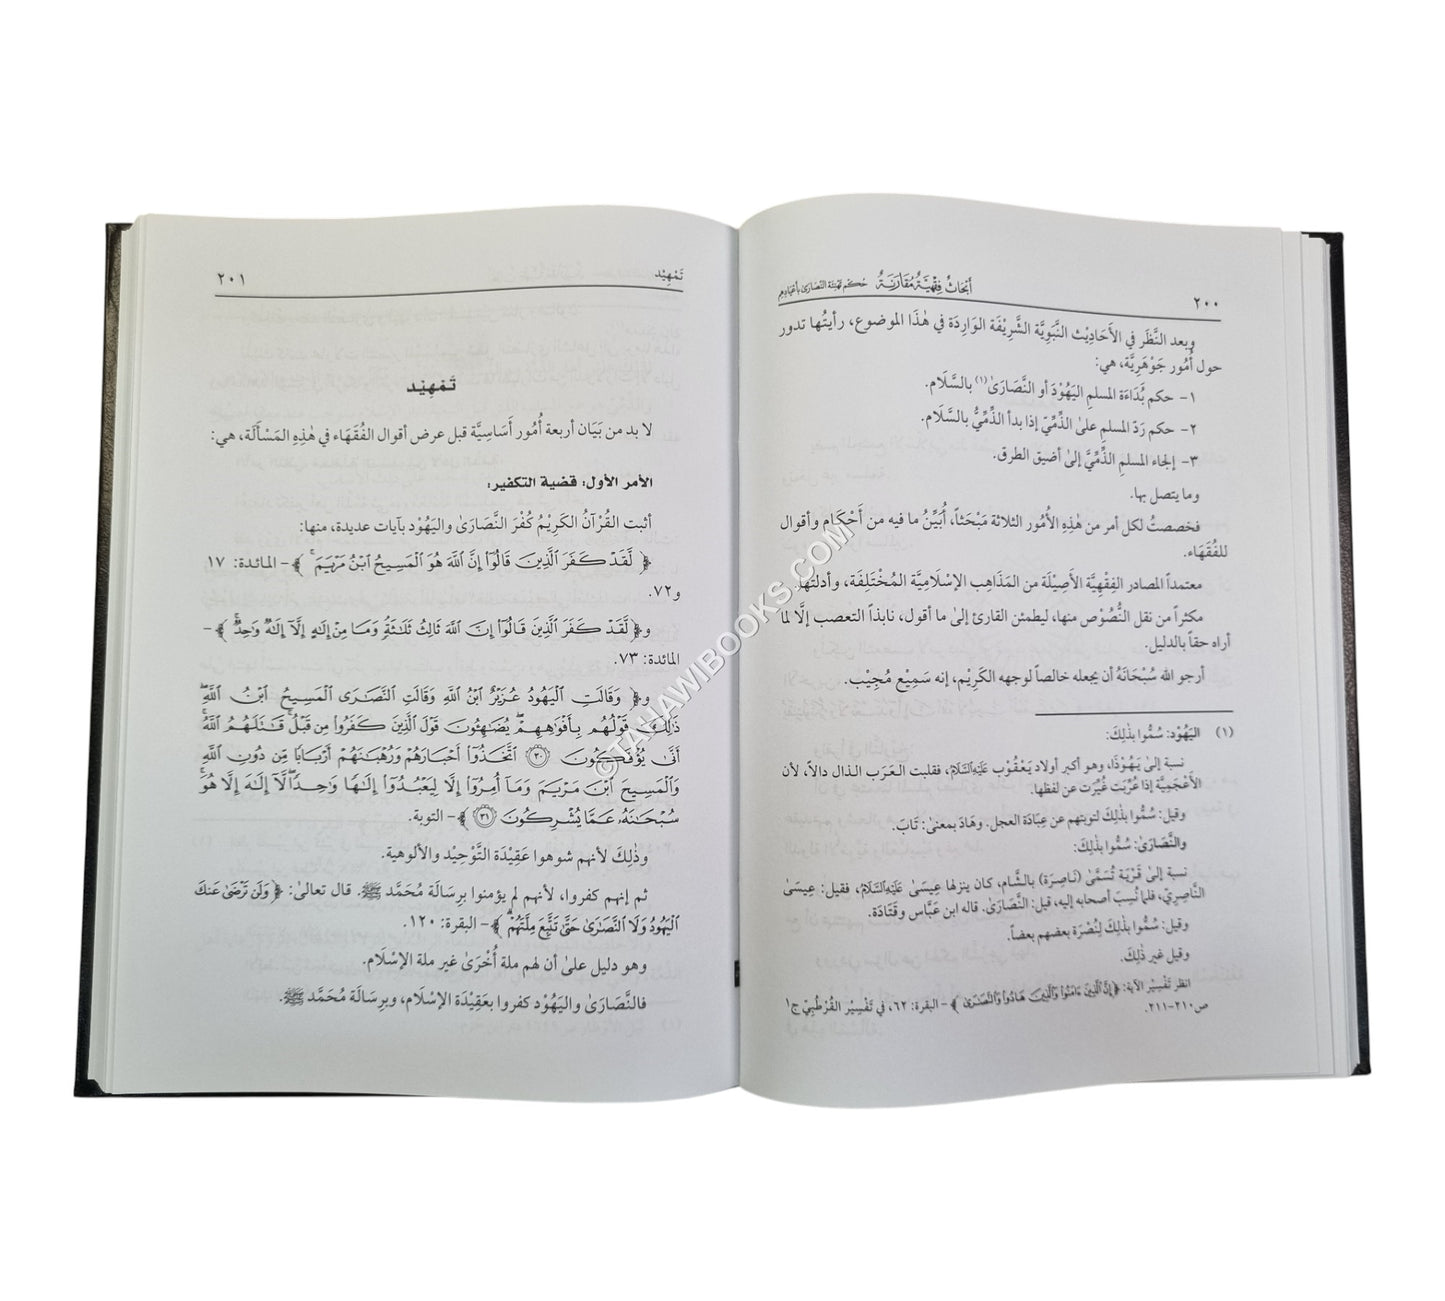 ٢٠٠
أبْحَاثٌ فِقْهِيَّةٌ مُقَارَنَةٌ حُكم تهنئة النَّصَارى بأعْيَادِهِم
وبعد النَّظَر في الأَحَادِيْث النَّبَوِيَّة الشَّرِيْفَة الوَارِدَة في هٰذَا الموضوع، رأيتُها تدور
حول أُمُور جَوْهَرِيَّة، هي:
١- حكم بُدَاءَة المسلمِ اليَهُوْدَ أو النَّصَارَىٰ(١) بالسَّلَام.
٢- حكم رَدِّ المسلمِ علىٰ الذِّمِّيِّ إذا بدأ الذِّمِّيُّ بالسَّلَام.
٣- إلجاء المسلمِ الذِّمِّيَّ إلىٰ أضيق الطرق.
وما يتصل بها.
فخصصتُ لكل أمر من هٰذِهِ الأُمُور الثلاثة مَبْحَثاً، أُبَيِّنُ ما فيه من أَحْكَام وأقوال
للفُقَهَاء.
معتمداً المصادر الفِقْهِيَّة الأَصِيْلَة من المَذَاهِب الإسْلَامِيَّة المُخْتَلِفَة، وأدلتَها.
مكثراً من نقل النُّصُوْص منها، ليطمئن القارئ إلىٰ ما أقول، نابذاً التعصب إلَّا لما
أراه حقاً بالدليل.
أرجو الله سُبْحَانَهُ أن يجعله خالصاً لوجهه الكَرِيْم، إنه سَمِيْع مُجِيْب.
(١) اليَهُوْد: سُمُّوا بذٰلِكَ:
نسبة إلىٰ يَهُوْذَا، وهو أكبر أولاد يَعْقُوْب عَلَيْهِ السَّلَامُ، فقلبت العَرَب الذال دالاً، لأن
الأَعْجَمِيَّة إذا عُرِّبَت غُيِّرَت عن لفظها.
وقيل: سُمُّوا بذٰلِكَ لتوبتهم عن عِبَادَة العجل. وهَادَ بمعنىٰ: تَابَ.
والنَّصَارَىٰ: سُمُّوا بذٰلِكَ:
نسبة إلىٰ قَرْيَة تُسَمَّىٰ (نَاصِرَة) بالشَّام، كان ينزلها عِيسَىٰ عَلَيْهِ السَّلَامُ، فقيل: عِيسَىٰ
النَّاصِرِيّ، فلما نُسِبَ أصحابه إليه، قيل: النَّصَارَىٰ. قاله ابن عَبَّاس وقَتَادَة.
وقيل: سُمُّوا بذٰلِكَ لِنُصْرَة بعضهم بعضاً.
وقيل غير ذٰلِكَ.
انظر تَفْسِيْر الآية: ﴿إِنَّ الَّذِينَ ءَامَنُوا وَالَّذِينَ هَادُوا وَالنَّصَٰرَىٰ﴾ - البقرة: ٦٢، في تَفْسِيْر القُرْطُبِيّ ج١
ص٢١٠-٢١١.
تَمْهِيْد
٢٠١
تَمْهِيْد
لا بد من بَيَان أربعة أُمُور أَسَاسِيَّة قبل عرض أقوال الفُقَهَاء في هٰذِهِ المَسْأَلَة، هي:
الأمر الأول: قضية التكفير:
أثبت القُرْآنُ الكَرِيْمُ كُفْرَ النَّصَارَىٰ واليَهُوْد بآيات عديدة، منها:
﴿لَّقَدْ كَفَرَ الَّذِينَ قَالُوٓا۟ إِنَّ اللَّهَ هُوَ الْمَسِيحُ ابْنُ مَرْيَمَ ۚ﴾ - المائدة: ١٧
و٧٢.
و﴿لَّقَدْ كَفَرَ الَّذِينَ قَالُوٓا۟ إِنَّ اللَّهَ ثَالِثُ ثَلَٰثَةٍ وَمَا مِنْ إِلَٰهٍ إِلَّآ إِلَٰهٌ وَٰحِدٌ ۚ﴾ -
المائدة: ٧٣.
و﴿ وَقَالَتِ الْيَهُودُ عُزَيْرٌ ابْنُ اللَّهِ وَقَالَتِ النَّصَٰرَى الْمَسِيحُ ابْنُ اللَّهِ ۖ
ذَٰلِكَ قَوْلُهُم بِأَفْوَٰهِهِمْ ۖ يُضَٰهِـُٔونَ قَوْلَ الَّذِينَ كَفَرُوا۟ مِن قَبْلُ ۚ قَٰتَلَهُمُ اللَّهُ ۚ
أَنَّىٰ يُؤْفَكُونَ ٣٠ اتَّخَذُوٓا۟ أَحْبَارَهُمْ وَرُهْبَٰنَهُمْ أَرْبَابًا مِّن دُونِ اللَّهِ
وَالْمَسِيحَ ابْنَ مَرْيَمَ وَمَآ أُمِرُوٓا۟ إِلَّا لِيَعْبُدُوٓا۟ إِلَٰهًا وَٰحِدًا ۖ لَّآ إِلَٰهَ إِلَّا هُوَ ۚ
سُبْحَٰنَهُۥ عَمَّا يُشْرِكُونَ ٣١﴾ - التوبة.
وذٰلِكَ لأنهم شوهوا عَقِيْدَة التَّوْحِيْد والألوهية.
ثم إنهم كفروا، لأنهم لم يؤمنوا برِسَالَة مُحَمَّد ﷺ. قال تعالىٰ: ﴿وَلَن تَرْضَىٰ عَنكَ
الْيَهُودُ وَلَا النَّصَٰرَىٰ حَتَّىٰ تَتَّبِعَ مِلَّتَهُمْ ۗ﴾ - البقرة: ١٢٠.
وهو دليل علىٰ أن لهم ملة أُخْرَىٰ غير ملة الإسْلَام.
فالنَّصَارَىٰ واليَهُوْد كفروا بعَقِيْدَة الإسْلَام، وبرِسَالَة مُحَمَّد ﷺ.
©TAJAWIBOOKS.COM